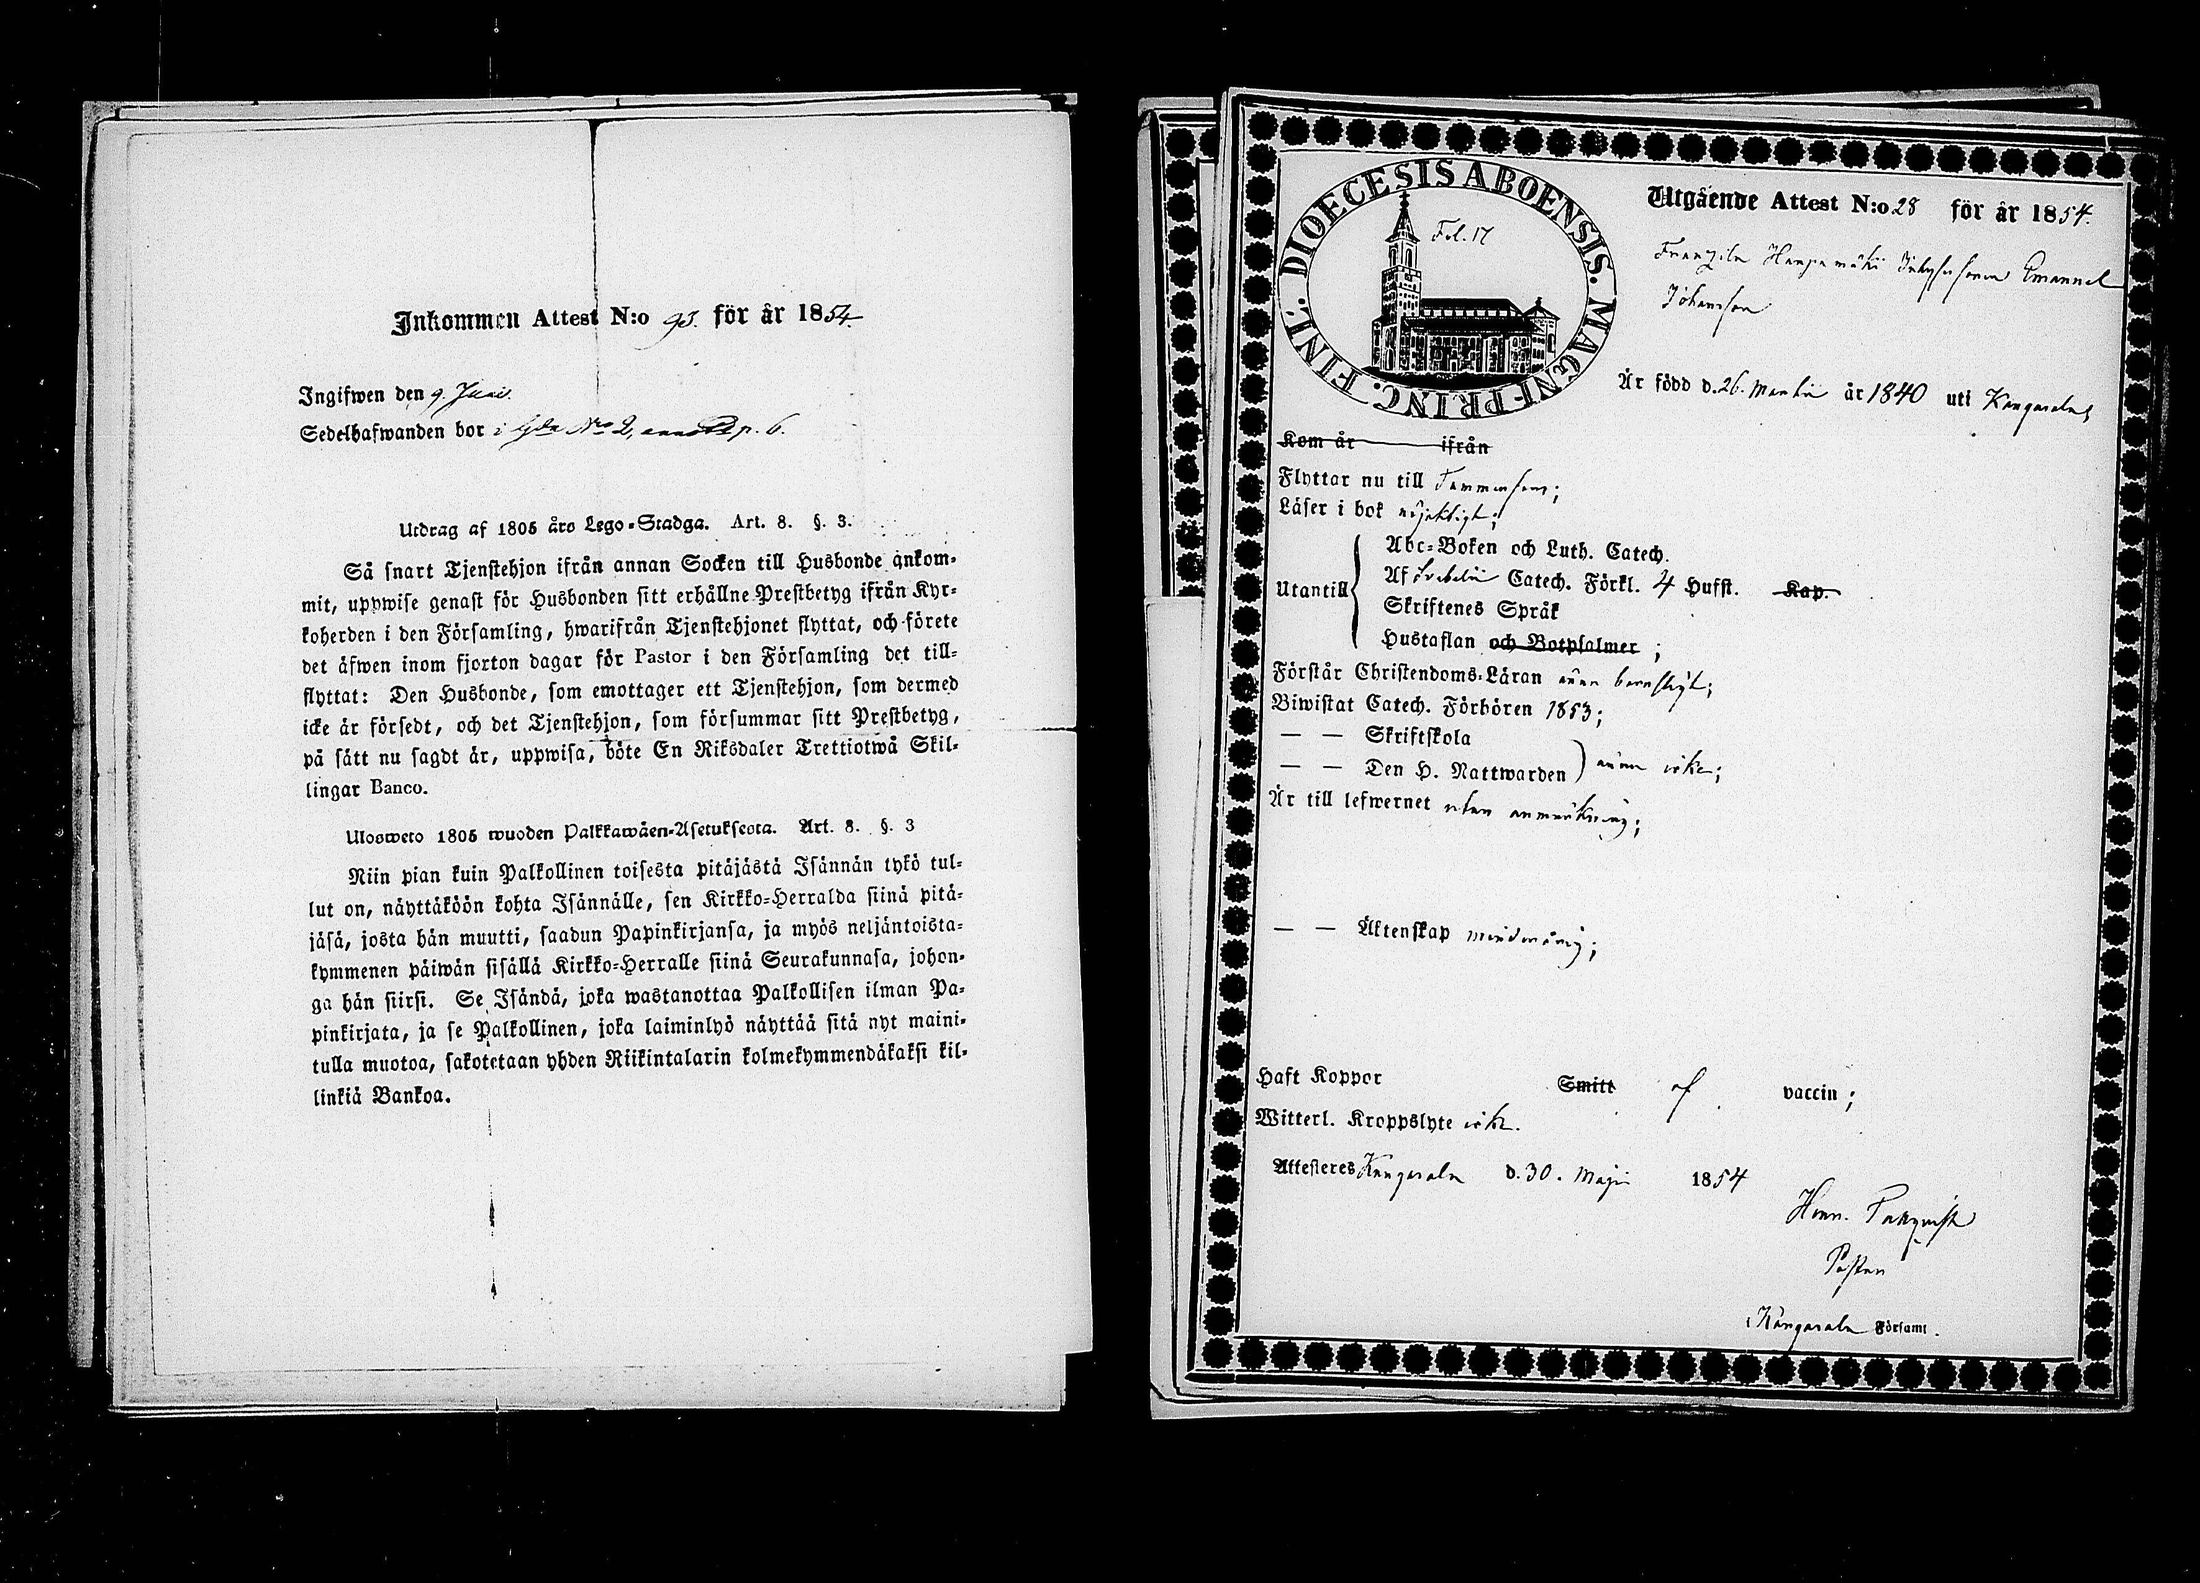 Inkommen Attest N:o 93. för år 1854.
Ingifwen den 9. Juni.
Sedelhafwanden bor i N:o 2, p. 6.
Utdrag af 1805 års Lego-Stadga. Art. 8. §. 3.
Så snart Tjenstehjon ifrån annan Socken till Husbonde ankom-
mit, uppwise genast för Husbonden sitt erhållne Prestbetyg ifrån Kyr-
koherden i den Församling, hwarifrån Tjenstehjonet flyttat, och förete
det äfwen inom fjorton dagar för Pastor i den Församling det till-
flyttat: Den Husbonde, som emottager ett Tjenstehjon, som dermed
icke är försedt, och det Tjenstehjon, som försummar sitt Prestbetyg,
på sätt nu sagdt är, uppwisa, böte En Riksdaler Trettiotwå Skil-
lingar Banco.
Ulosweto 1805 wuoden Palkkawäen-Asetuksesta. Art. 8. §. 3
Niin pian kuin Palkollinen toisesta pitäjästä Isännän tykö tul-
lut on, näyttäköön kohta Isännälle, sen Kirkko-Herralda siinä pitä-
jäsä, josta hän muutti, saadun Papinkirjansa, ja myös neljäntoista-
kymmenen päiwän sisällä Kirkko-Herralle siinä Seurakunnasa, johon-
ga hän siirsi. Se Isändä, joka wastanottaa Palkollisen ilman Pa-
pinkirjata, ja se Palkollinen, joka laiminlyö näyttää sitä nyt maini-
tulla muotoa, sakotetaan yhden Riikintalarin kolmekymmendäkaksi kil-
linkiä Bankoa.
DIOECESIS ABOENSIS. MAGNI PRINC. FINL.
Fol. 17
Utgående Attest N:o 28 för år 1854.
Frangila Haapamäki Emanuel
Johansson
Är född d. 26. Martii år 1840 uti Kangasala;
Kom år ifrån
Flyttar nu till Tammerfors;
Läser i bok nöjaktigt;
Utantill
Abc-Boken och Luth. Catech.
Af Svebelii Catech. Förkl. 4 Hufst. Kap.
Skriftenes Språk
Hustaflan och Botpsalmer ;
Förstår Christendoms-Läran ännu barnsligt;
Biwistat Catech. Förhören 1853;
— — Skriftskola
— — Den H. Nattwarden ) ännu icke;
Är till lefwernet utan anmärkning;
— — Äktenskap minderårig;
Haft Koppor Smitt af vaccin ;
Witterl. Kroppslyte icke.
Attesteres Kangasala d. 30. Maji 1854
Henr.
Pastor
i Kangasala Församl.